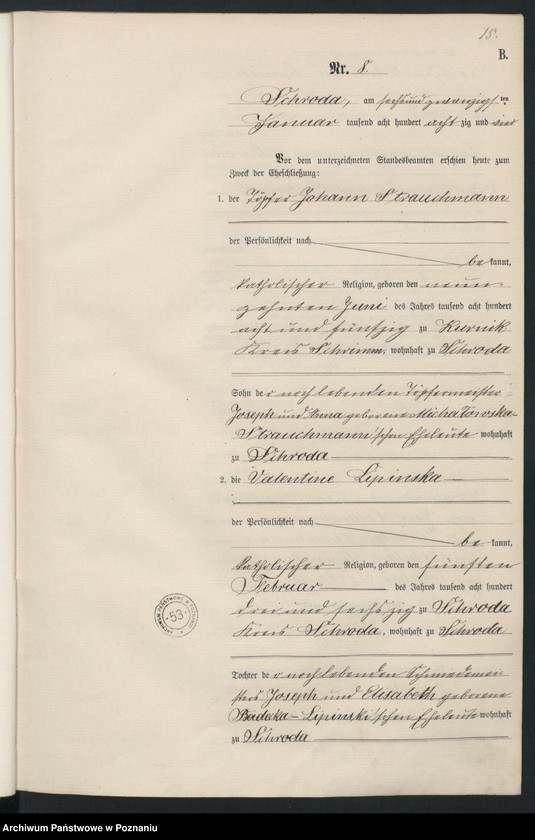 15.
B.
Nr. 8.
Schroda, am sechsundzwanzigsten
Januar tausend acht hundert achtzig und vier
Vor dem unterzeichneten Standesbeamten erschien heute zum
Zweck der Eheschließung:
1. der Töpfer Johann Strauchmann
der Persönlichkeit nach
bekannt,
katholischer Religion, geboren den neun
zehnten Juni des Jahres tausend acht hundert
acht und fünfzig zu Kurnik
Kreis Schrimm, wohnhaft zu Schroda
Sohn der noch lebenden Töpfermeister
Joseph und Anna geborene Michałowska-
Strauchmann'schen Eheleute wohnhaft
zu Schroda
2. die Valentine Lipinska
der Persönlichkeit nach
bekannt,
katholischer Religion, geboren den fünften
Februar des Jahres tausend acht hundert
drei und sechszig zu Schroda
Kreis Schroda, wohnhaft zu Schroda
Tochter der noch lebenden Schmiedemei
sters Joseph und Elisabeth geborene
Lipinski'schen Eheleute wohnhaft
zu Schroda
ARCHIWUM PAŃSTWOWE W POZNANIU
53
Archiwum Państwowe w Poznaniu